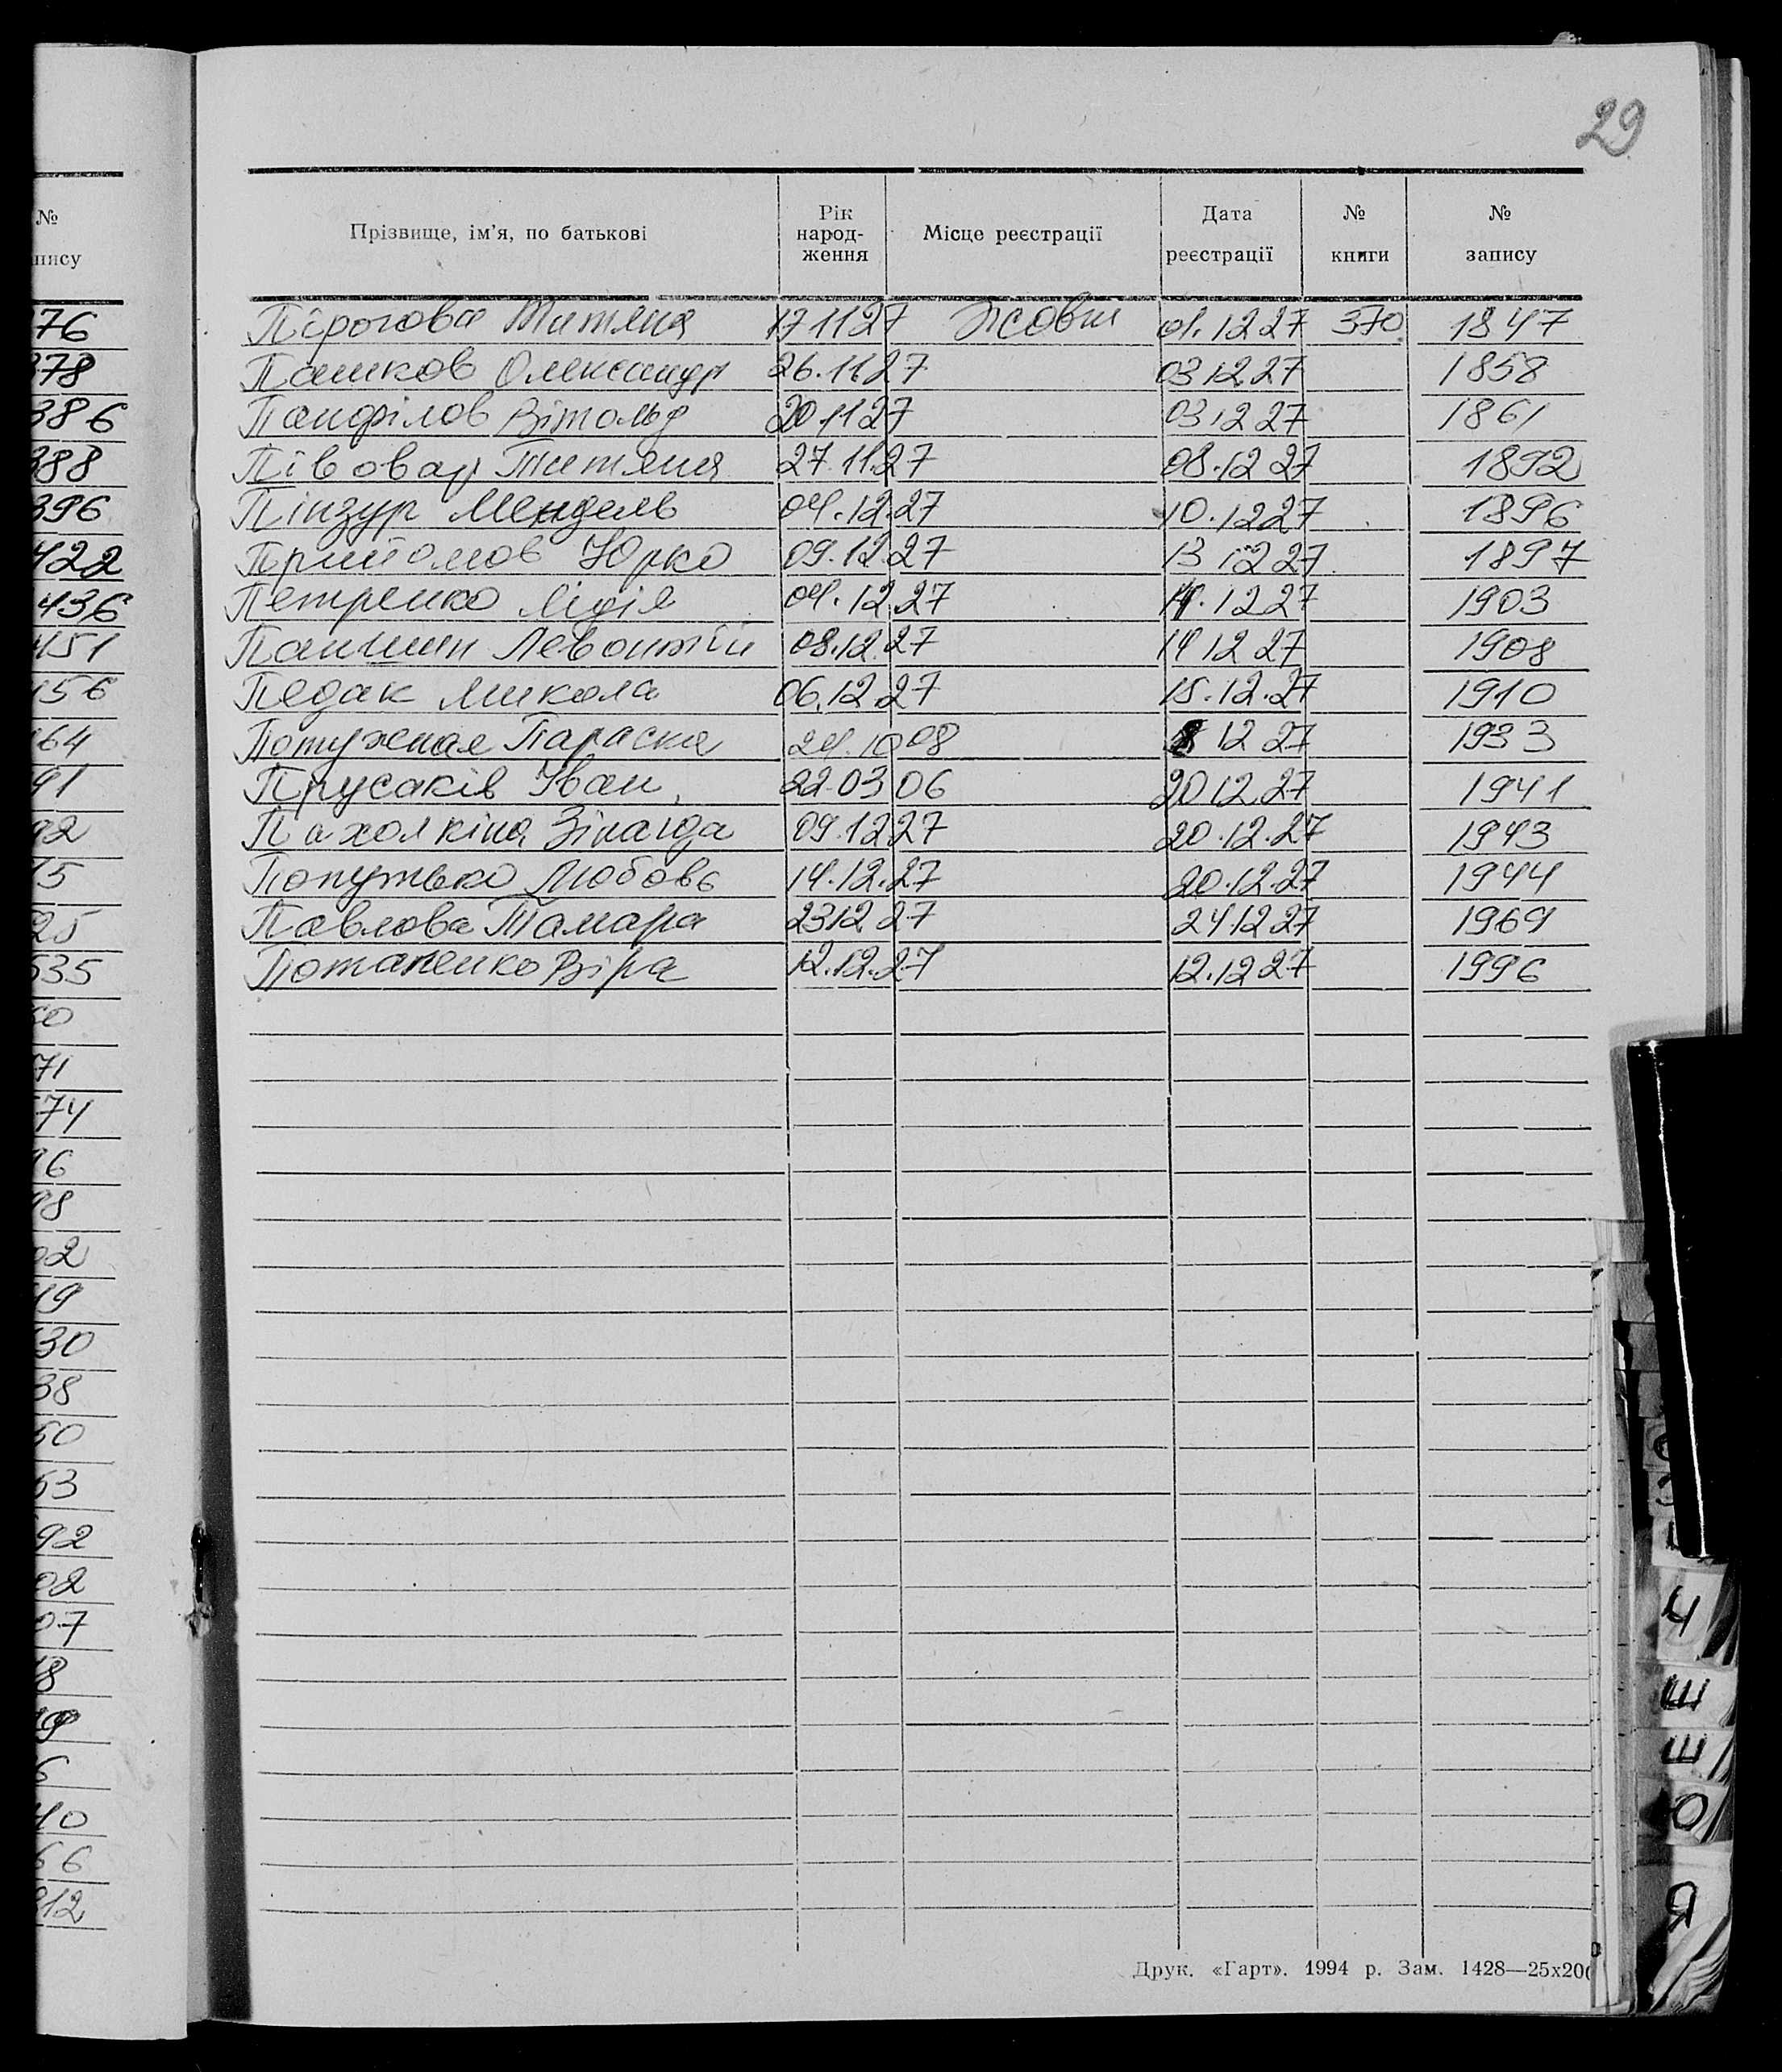 29
№
пису
76
378
386
388
396
422
436
451
156
164
91
92
15
25
535
50
71
74
96
98
02
19
30
38
50
53
92
02
07
18
19
6
40
66
912
Прізвище, ім'я, по батькові Рік народ-ження Місце реєстрації Дата реєстрації № книги № запису
Пірогова Татяна 17 11 27 Жовтн 01.12 27 370 1847
Пашков Олександр 26.11 27 03 12 27 1858
Панфілов Вітольд 20 11 27 03 12 27 1861
Півовар Татяна 27.11.27 08.12 27 1892
Пінзур Мендель 04.12.27 10.12 27 1896
Прийомов Юрко 09.12.27 13 12 27 1897
Петренко Лідія 04.12.27 14.12 27 1903
Паншин Левонтій 08.12.27 14 12 27 1908
Педак Микола 06.12.27 15.12.27 1910
Потужная Параска 24.10 08 12 27 1933
Прусаків Іван 22.03 06 20 12 27 1941
Пахолкіна Зінаіда 09.12 27 20.12.27 1943
Попутько Любовь 14.12.27 20.12.27 1944
Павлова Тамара 23 12 27 24 12 27 1969
Потапенко Віра 12.12.27 12.12 27 1996
Друк. «Гарт». 1994 р. Зам. 1428—25х20
Ч
Щ
Ш
Ю
Я